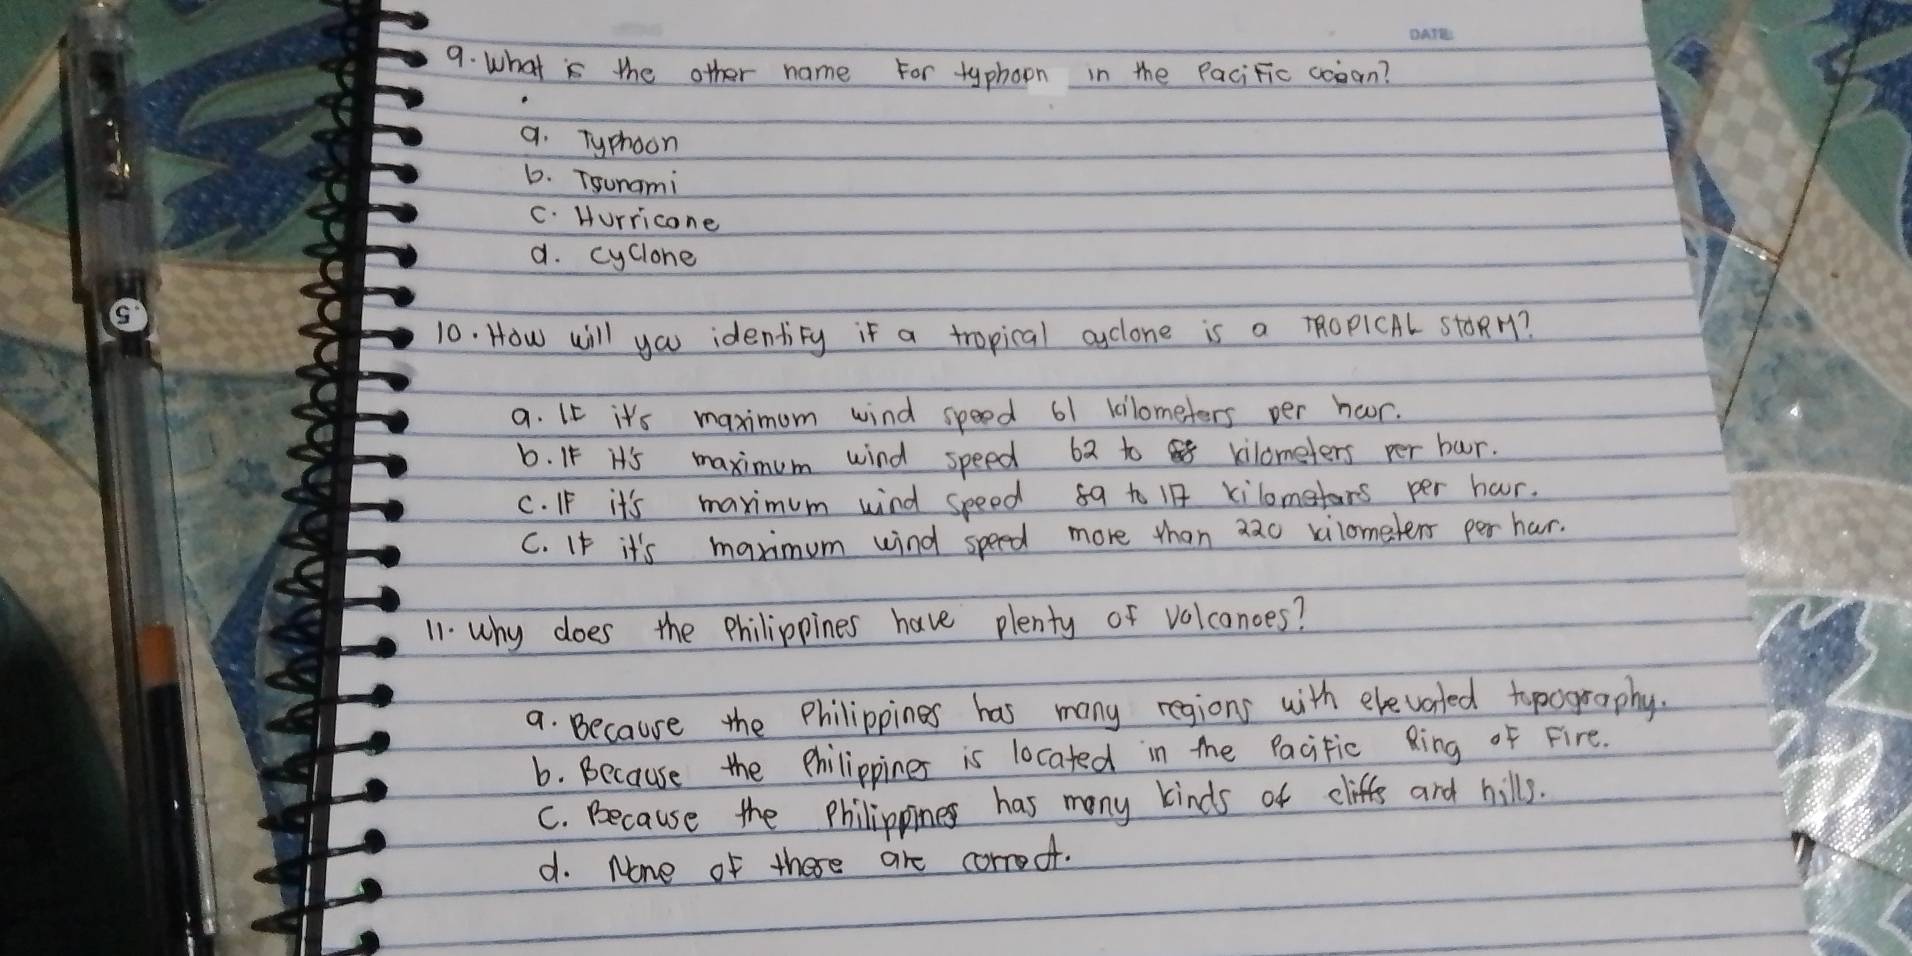 DATE:
9. What is the other name For typhoon in the Pacific ocean?
a. Typhoon
b. Tsunami
c. Hurricane
d. cyclone
10. How will you identify if a tropical cyclone is a TROPICAL STORM?
a. If it's maximum wind speed 61 kilometers per hour.
b. If it's maximum wind speed 62 to 88 kilometers per hour.
c. If it's maximum wind speed 89 to 117 kilometers per hour.
c. If it's maximum wind speed more than 220 kilometers per hour.
11. Why does the Philippines have plenty of volcanoes?
a. Because the Philippines has many regions with elevated topography.
b. Because the Philippines is located in the Pacific Ring of Fire.
c. Because the Philippines has many kinds of cliffs and hills.
d. None of these are correct.
.5